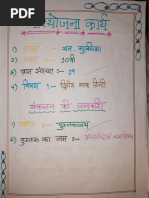 परियोजना कार्य
1) नाम :- एन. सुप्रिया
2) कक्षा :- 10वी
3) क्रम संख्या :- 19
4) विषय :- द्वितीय भाषा हिंदी
संकलन की जानकारी
:- पुस्तकालय
2) पुस्तक का नाम :-